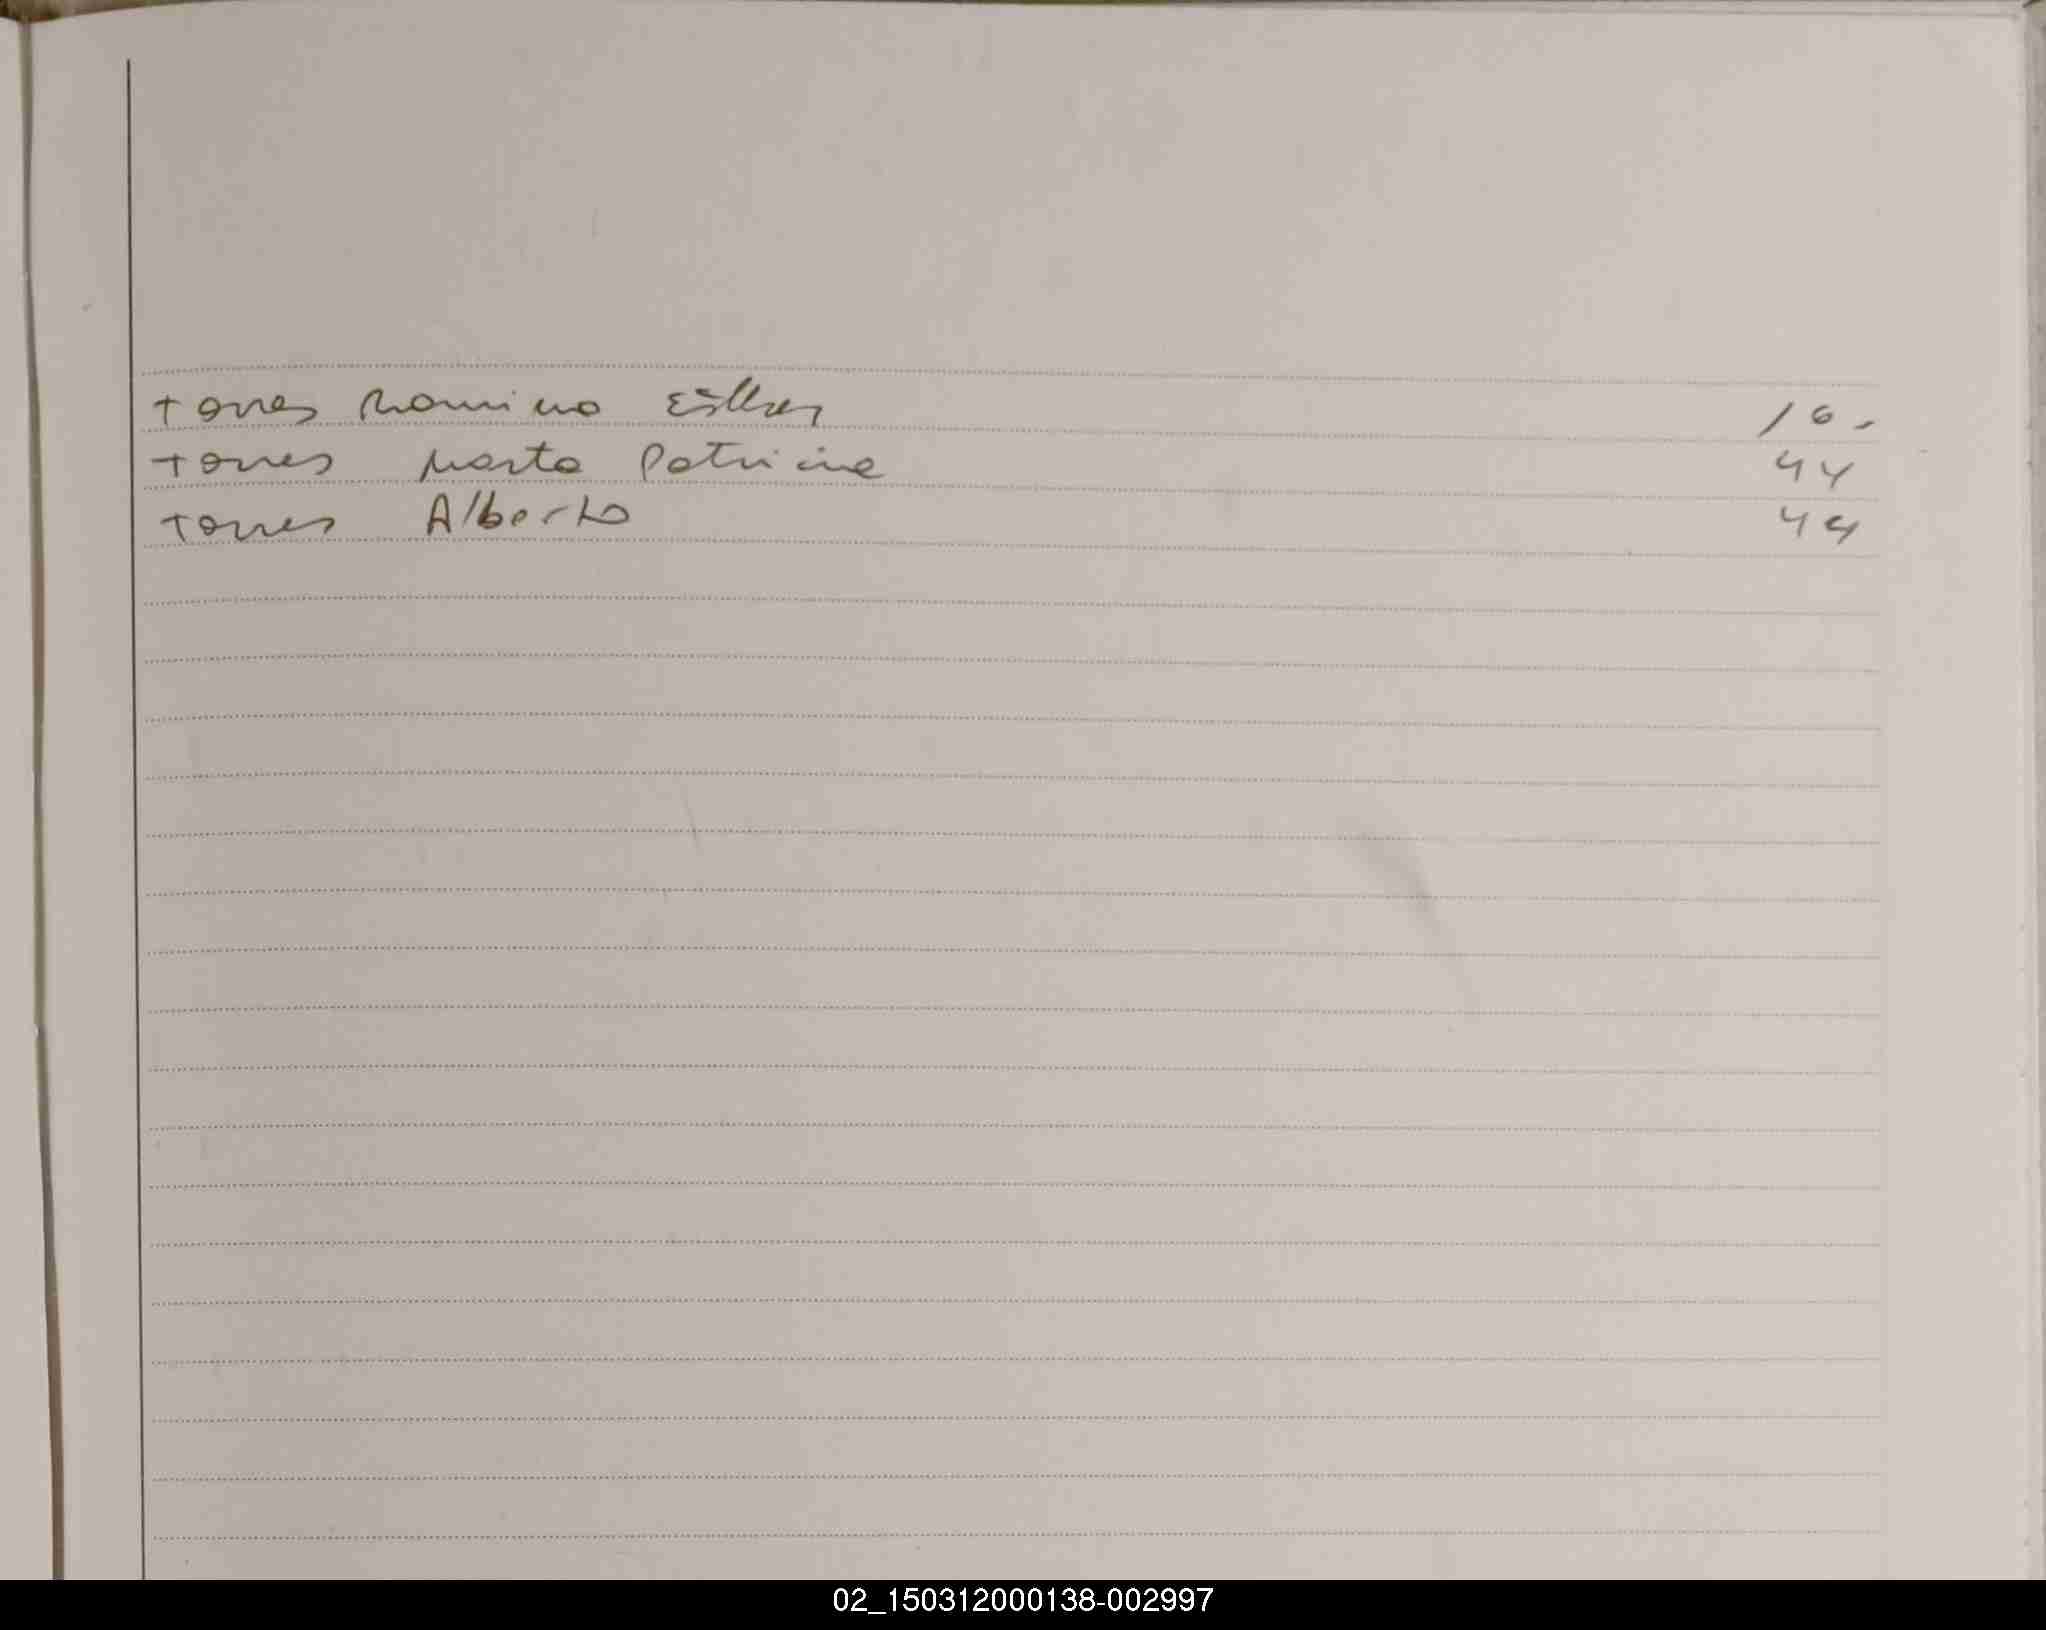 Torres Romina Esther 16.
Torres Marta Patricia 44
Torres Alberto 44
02_150312000138-002997